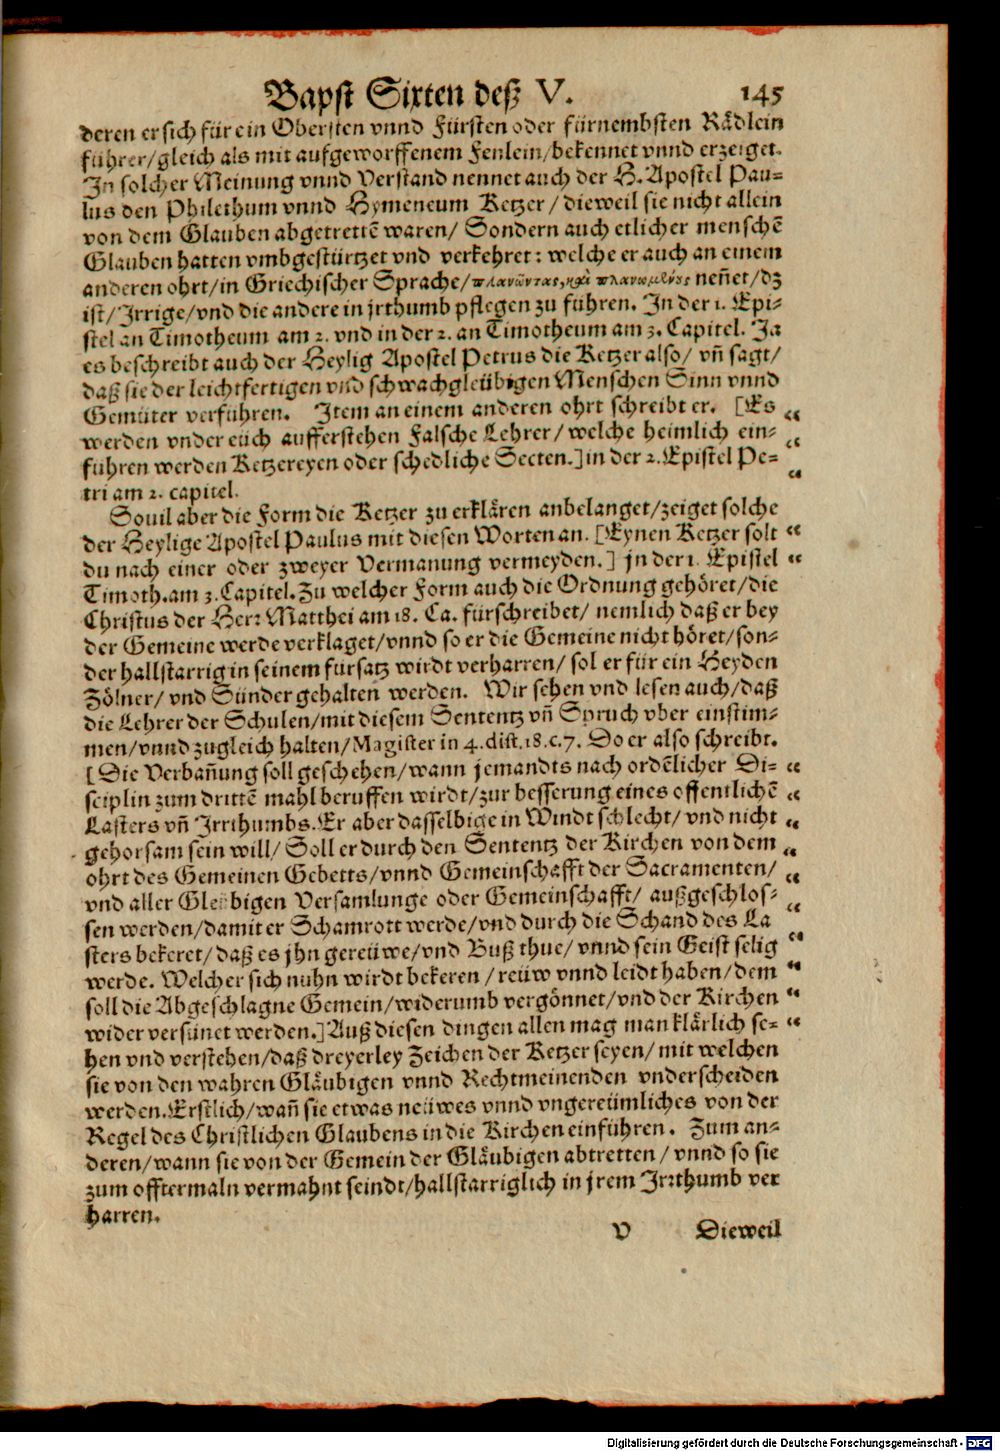 Bapst Sixten deß V. 145
deren er sich für ein Obersten vnnd Fürsten oder fürnembsten Rädlein
führer/gleich als mit aufgeworffenem Fenlein/bekennet vnnd erzeiget.
In solcher Meinung vnnd Verstand nennet auch der H. Apostel Pau-
lus den Philethum vnnd Hymeneum Ketzer/dieweil sie nicht allein
von dem Glauben abgetrettē waren/ Sondern auch etlicher menschē
Glauben hatten vmbgestürtzet vnd verkehret: welche er auch an einem
anderen ohrt/in Griechischer Sprache/πλανῶντας, καὶ πλανωμένους neñet/dz
ist/Irrige/vnd die andere in jrthumb pflegen zu führen. In der 1. Epi-
stel an Timotheum am 2. vnd in der 2. an Timotheum am 3. Capitel. Ja
es beschreibt auch der Heylig Apostel Petrus die Ketzer also/ vñ sagt/
daß sie der leichtfertigen vnd schwachgleübigen Menschen Sinn vnnd
Gemüter verführen. Item an einem anderen ohrt schreibt er. [Es „
werden vnder eüch aufferstehen Falsche Lehrer/welche heimlich ein- „
führen werden Ketzereyen oder schedliche Secten.] in der 2. Epistel Pe- „
tri am 2. capitel.
Souil aber die Form die Ketzer zu erklären anbelanget/zeiget solche
der Heylige Apostel Paulus mit diesen Worten an. [Eynen Ketzer solt „
du nach einer oder zweyer Vermanung vermeyden.] jn der 1. Epistel „
Timoth. am 3. Capitel. Zu welcher Form auch die Ordnung gehöret/die
Christus der Herr Matthei am 18. Ca. fürschreibet/ nemlich daß er bey
der Gemeine werde verklaget/vnnd so er die Gemeine nicht höret/son-
der hallstarrig in seinem fürsatz wirdt verharren/ sol er für ein Heyden
Zölner/ vnd Sünder gehalten werden. Wir sehen vnd lesen auch/daß
die Lehrer der Schulen/mit diesem Sententz vñ Spruch vber einstim-
men/vnnd zugleich halten/Magister in 4. dist. 18. c. 7. Do er also schreibt.
[Die Verbañung soll geschehen/wann jemandts nach ordēlicher Di- „
sciplin zum drittē mahl beruffen wirdt/zur besserung eines offentlichē „
Lasters vñ Irrthumbs. Er aber dasselbige in Windt schlecht/ vnd nicht „
gehorsam sein will/ Soll er durch den Sententz der Kirchen von dem „
ohrt des Gemeinen Gebetts/vnnd Gemeinschafft der Sacramenten/ „
vnd aller Gleübigen Versamlunge oder Gemeinschafft/ außgeschlos- „
sen werden/damit er Schamrott werde/vnd durch die Schand des La „
sters bekeret/daß es jhn gereüwe/vnd Buß thue/ vnnd sein Geist selig
werde. Welcher sich nuhn wirdt bekeren/reüw vnnd leidt haben/dem „
soll die Abgeschlagne Gemein/widerumb vergönnet/vnd der Kirchen „
wider versünet werden.] Auß diesen dingen allen mag man klärlich se- „
hen vnd verstehen/daß dreyerley Zeichen der Ketzer seyen/ mit welchen
sie von den wahren Gläubigen vnnd Rechtmeinenden vnderscheiden
werden. Erstlich/wañ sie etwas neüwes vnnd vngereümliches von der
Regel des Christlichen Glaubens in die Kirchen einführen. Zum an-
deren/wann sie von der Gemein der Gläubigen abtretten/ vnnd so sie
zum offtermaln vermahnt seindt/hallstarriglich in jrem Irrthumb ver
harren.
V Dieweil
Digitalisierung gefördert durch die Deutsche Forschungsgemeinschaft - DFG